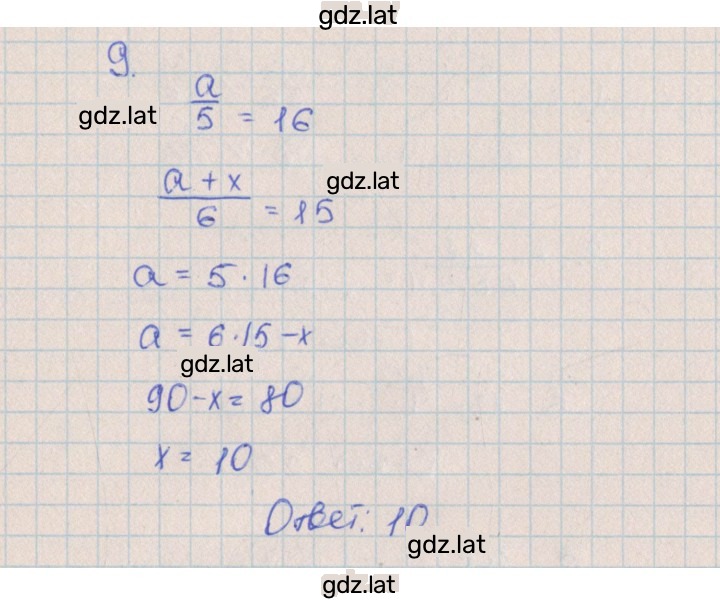 gdz.lat
9.
a/5 = 16
gdz.lat
(a + x)/6 = 15
gdz.lat
a = 5 · 16
a = 6 · 15 - x
gdz.lat
90 - x = 80
x = 10
Ответ: 10
gdz.lat
gdz.lat